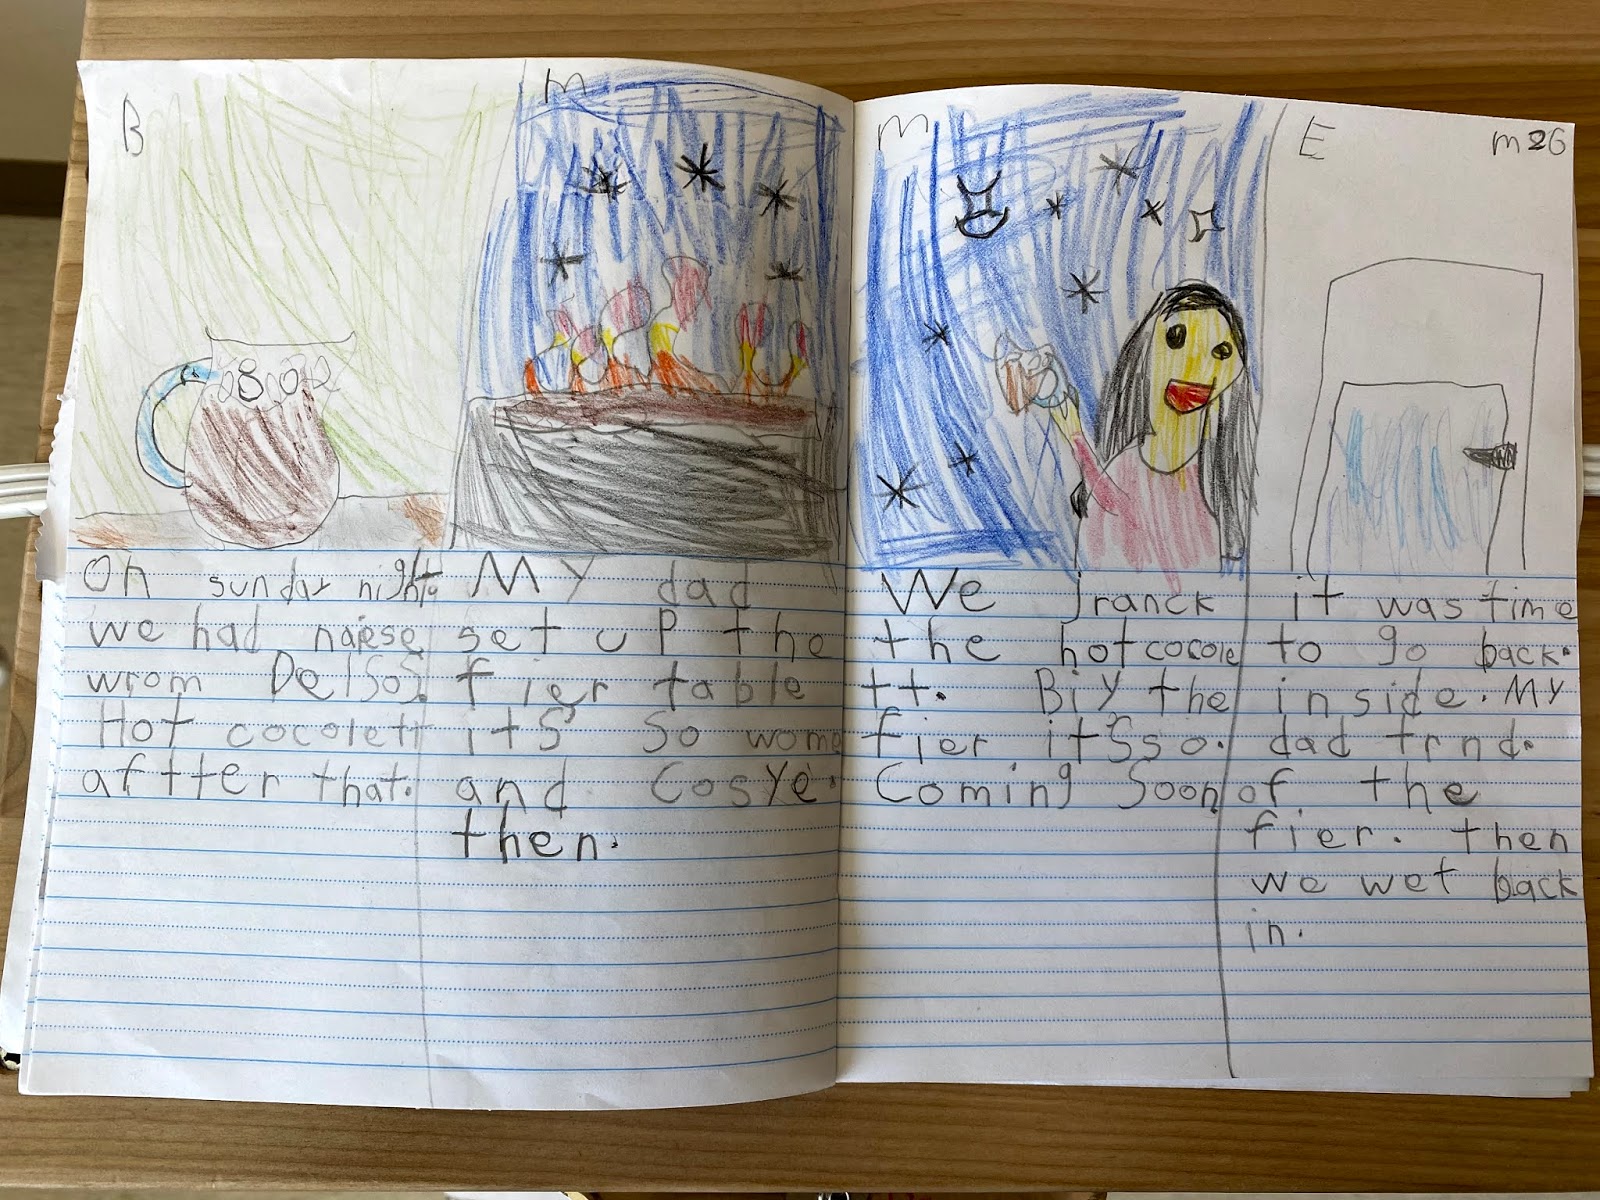 B
On sunday night
we had naiese
wrom Delsos
Hot cocolett
aftter that.
m
My dad
set up the
fier table
it's so wome
and Cosye.
then.
m
We Jranck
the hotcocole
tt. Biy the
fier it's so.
Coming Soon
E
m26
it was time
to go back.
inside. My
dad trnd.
of the
fier. then
we wet back
in.